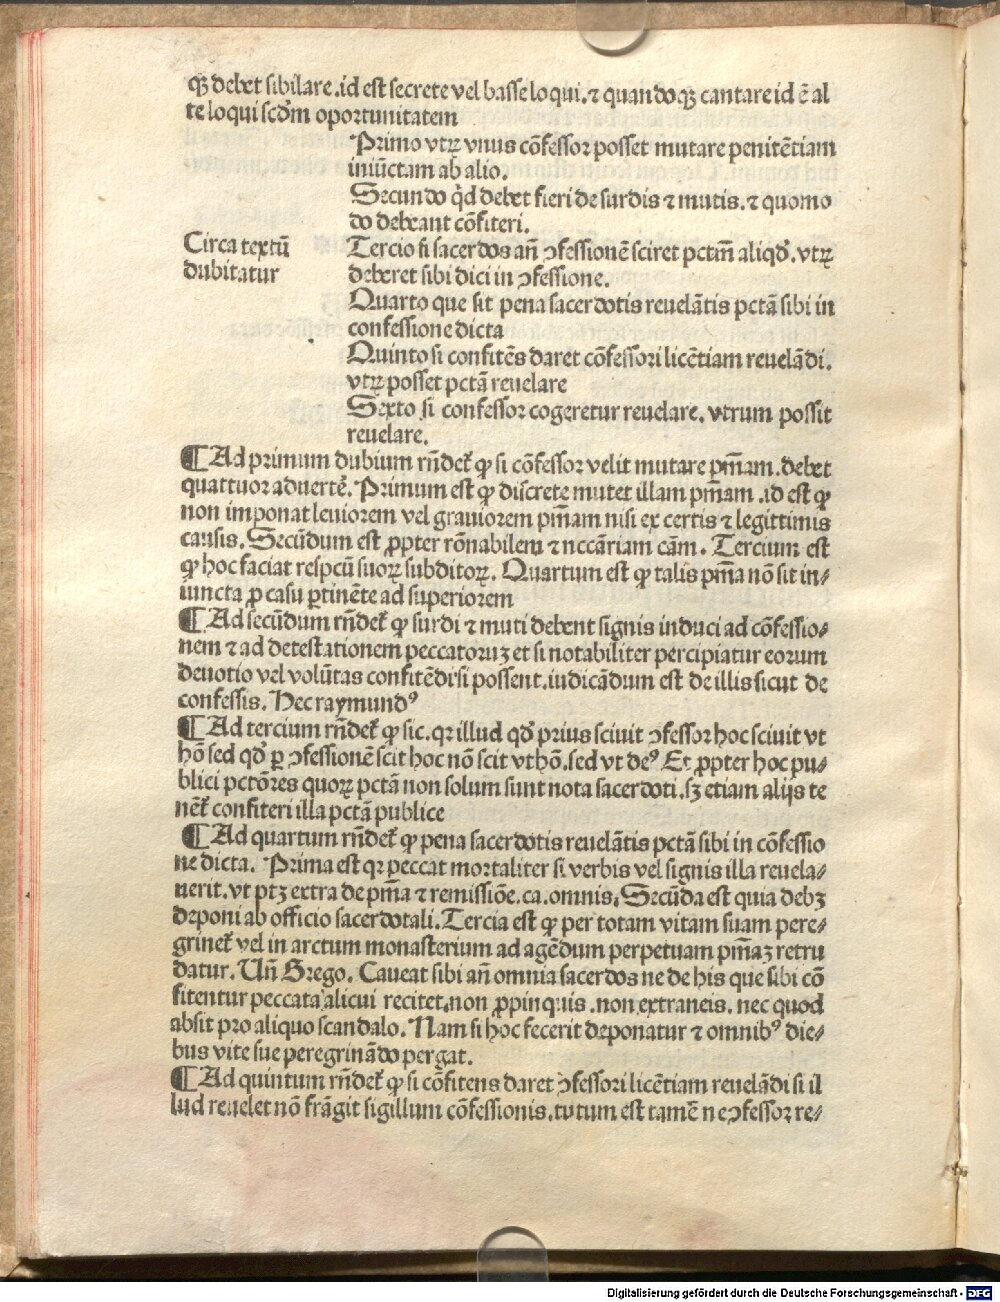 qꝫ debet sibilare .id est secrete vel basse loqui. ⁊ quandoqꝫ cantare id ē al
te loqui scḋm oportunitatem
Primo vtꝝ vnus cōfessor posset mutare penitētiam
iniūctam ab alio.
Secundo qͥd debet fieri de surdis ⁊ mutis. ⁊ quomo
do debeant cōfiteri.
Circa textū
dubitatur
Tercio si sacerdos añ ꝯfessionē sciret pctm̄ aliqḋ. vtꝝ
deberet sibi dici in ꝯfessione.
Quarto que sit pena sacerdotis reuelātis pctā sibi in
confessione dicta
Quinto si confitēs daret cōfessori licētiam reuelādi.
vtꝝ posset pctā reuelare
Sexto si confessor cogeretur reuelare. vtrum possit
reuelare.
¶ Ad primum dubium rñdet᷑ ꝙ si cōfessor velit mutare pn̄iam. debet
quattuor aduertē. Primum est ꝙ discrete mutet illam pn̄iam .id est ꝙ
non imponat leuiorem vel grauiorem pn̄iam nisi ex certis ⁊ legittimis
causis. Secūdum est ꝓpter rōnabilem ⁊ nccāriam cām. Tercium est
ꝙ hoc faciat respcū suoꝝ subditoꝝ. Quartum est ꝙ talis pn̄ia nō sit in⸗
iuncta ꝓ casu ꝑtinēte ad superiorem
¶ Ad secūdum rñdet᷑ ꝙ surdi ⁊ muti debent signis induci ad cōfessio⸗
nem ⁊ ad detestationem peccatoruꝫ et si notabiliter percipiatur eorum
deuotio vel volūtas confitēdi si possent. iudicādum est de illis sicut de
confessis. Hec raymundꝰ
¶ Ad tercium rñdet᷑ ꝙ sic. qꝛ illud qḋ prius sciuit ꝯfessor hoc sciuit vt
hō sed qḋ ꝑ ꝯfessionē scit hoc nō scit vt hō. sed vt deꝰ Et ꝓpter hoc pu⸗
blici pctōres quoꝝ pctā non solum sunt nota sacerdoti. sꝫ etiam alijs te
nēt᷑ confiteri illa pctā publice
¶ Ad quartum rñdet᷑ ꝙ pena sacerdotis reuelātis pctā sibi in cōfessio
ne dicta. Prima est qꝛ peccat mortaliter si verbis vel signis illa reuela⸗
uerit. vt ptꝫ extra de pn̄ia ⁊ remissiōe. ca. omnis. Secūda est quia debꝫ
deponi ab officio sacerdotali. Tercia est ꝙ per totam vitam suam pere⸗
grinet᷑ vel in arctum monasterium ad agēdum perpetuam pn̄iaꝫ retru
datur. Uñ Grego. Caueat sibi añ omnia sacerdos ne de his que sibi cō
fitentur peccata alicui recitet. non ꝓpinquis . non extraneis. nec quod
absit pro aliquo scandalo. Nam si hoc fecerit deponatur ⁊ omnibꝰ die⸗
bus vite sue peregrinādo pergat.
¶ Ad quintum rñdet᷑ ꝙ si cōfitens daret ꝯfessori licētiam reuelādi si il
lud reuelet nō frāgit sigillum cōfessionis. tutum est tamē ne ꝯfessor re⸗
Digitalisierung gefördert durch die Deutsche Forschungsgemeinschaft - DFG